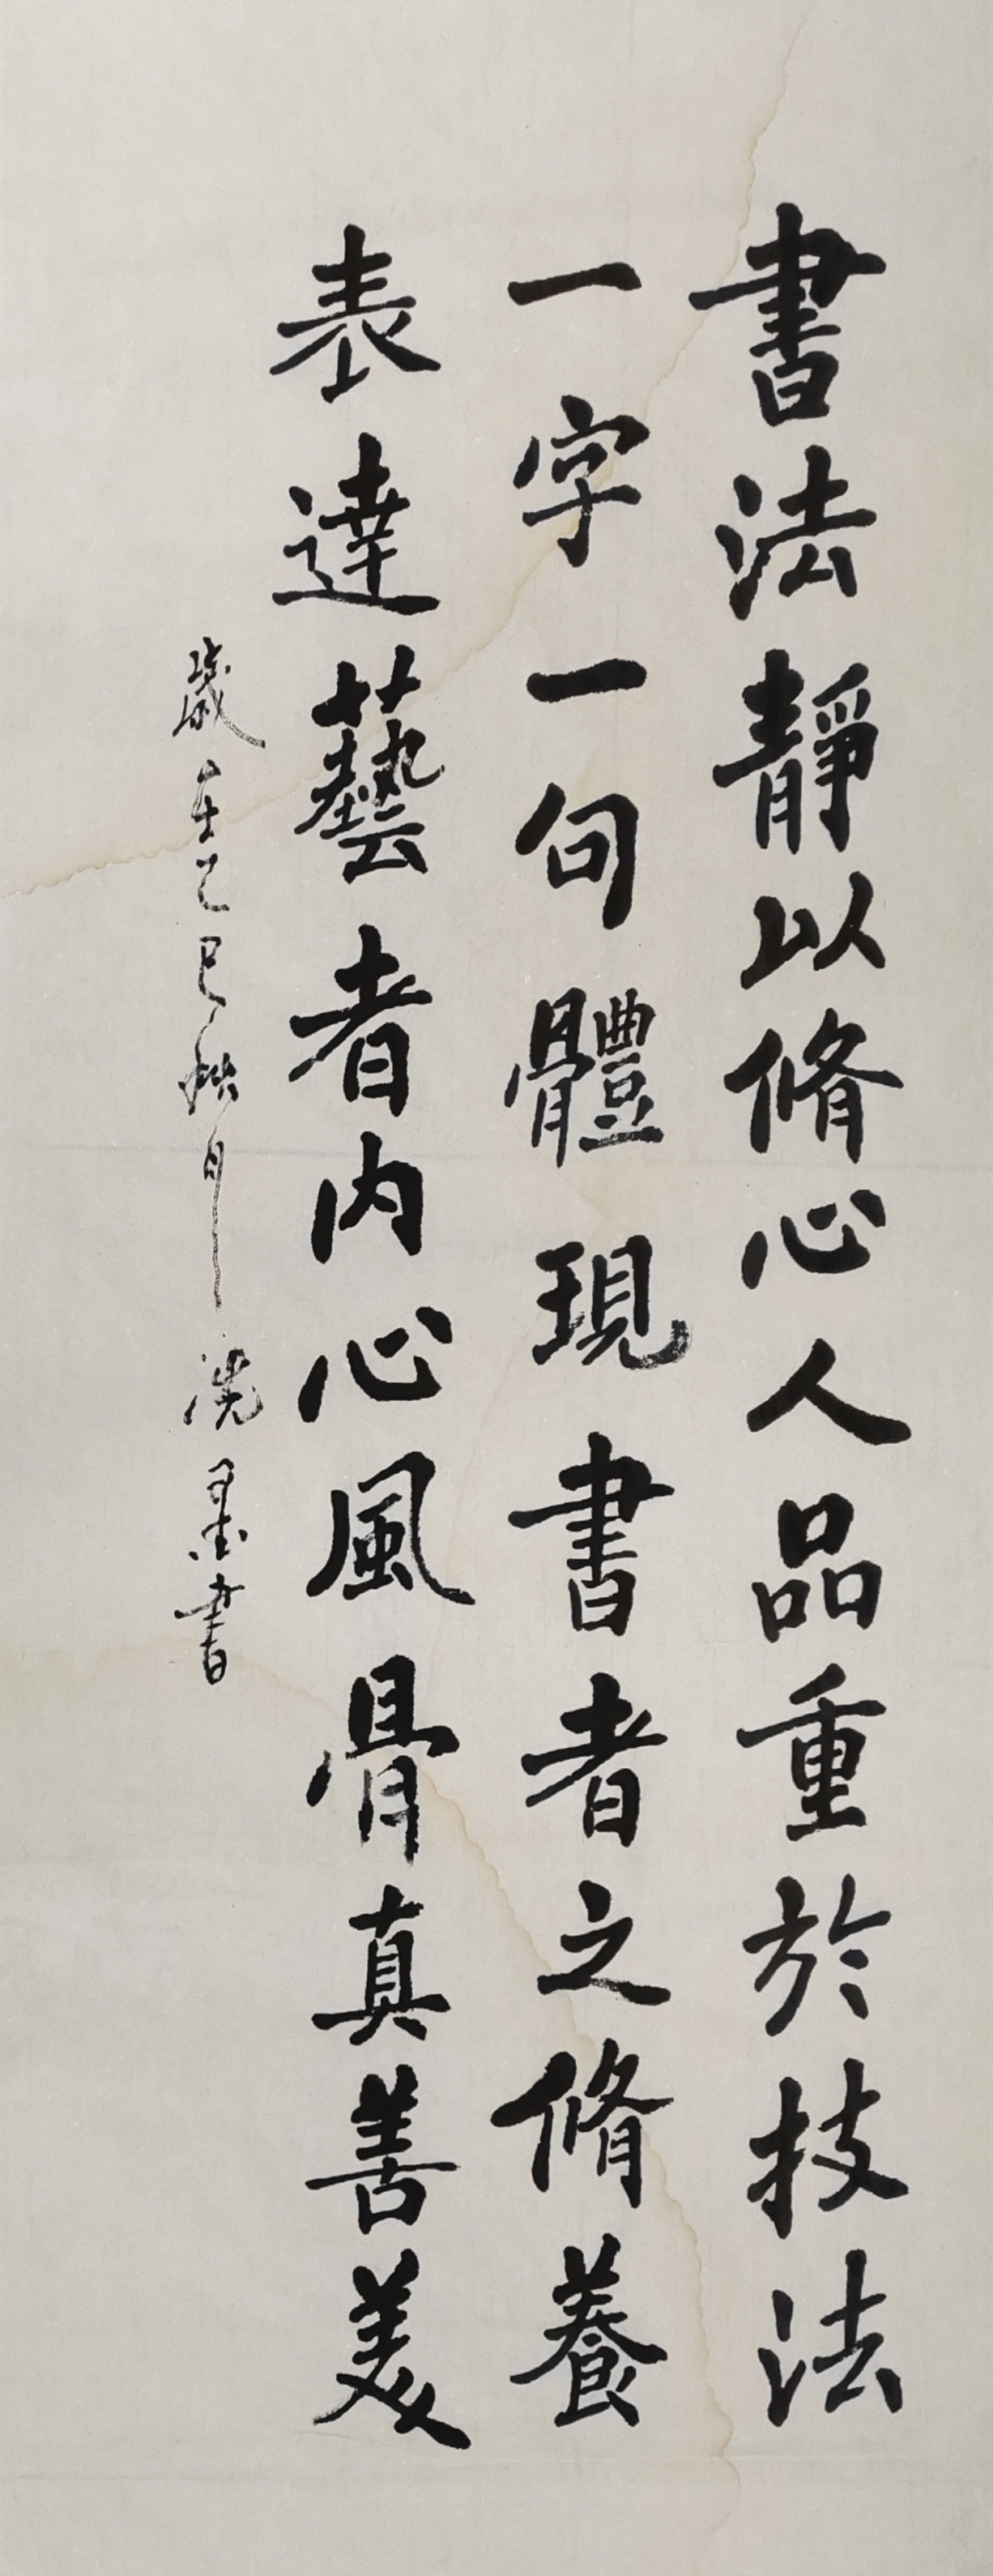 書法靜以脩心人品重於技法
一字一句體現書者之脩養
表達藝者內心風骨真善美
歲在乙巳秋月洗墨書